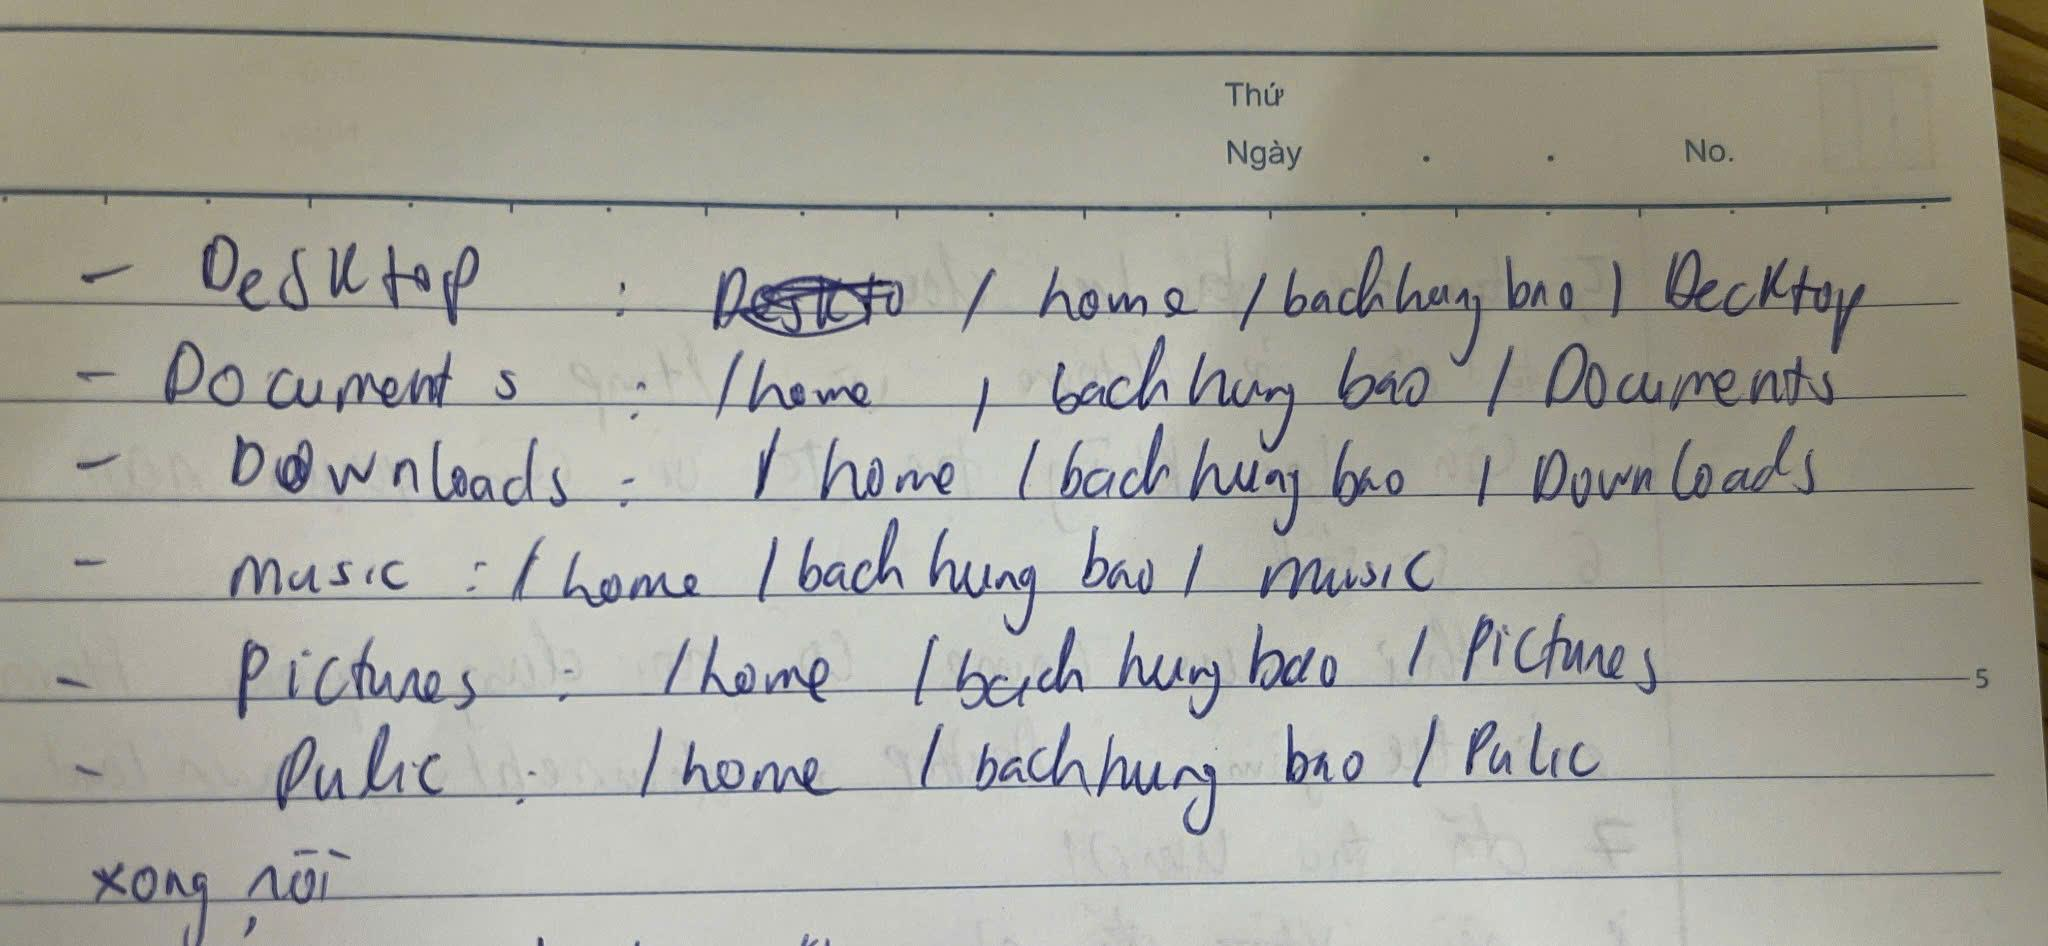 Thứ
Ngày . . No.
- Desktop : / home / bachhungbao / Decktop
- Documents : / home / bachhung bao / Documents
- Downloads : / home / bachhung bao / Downloads
- music : / home / bach hung bao / music
- pictures : / home / bach hung bao / Pictures
5
- Pulic : / home / bachhung bao / Pulic
xong rồi